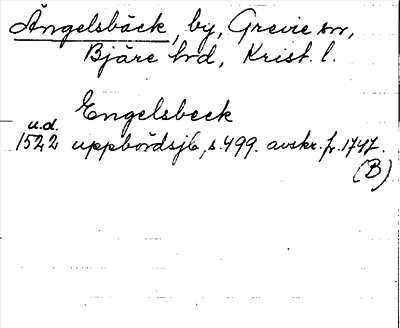 Ängelsbäck, by, Grevie sn,
Bjäre hd, Krist. l.
Engelsbeck
u.d.
1522 uppbördsjb, s. 499. avskr. fr. 1747.
(B)